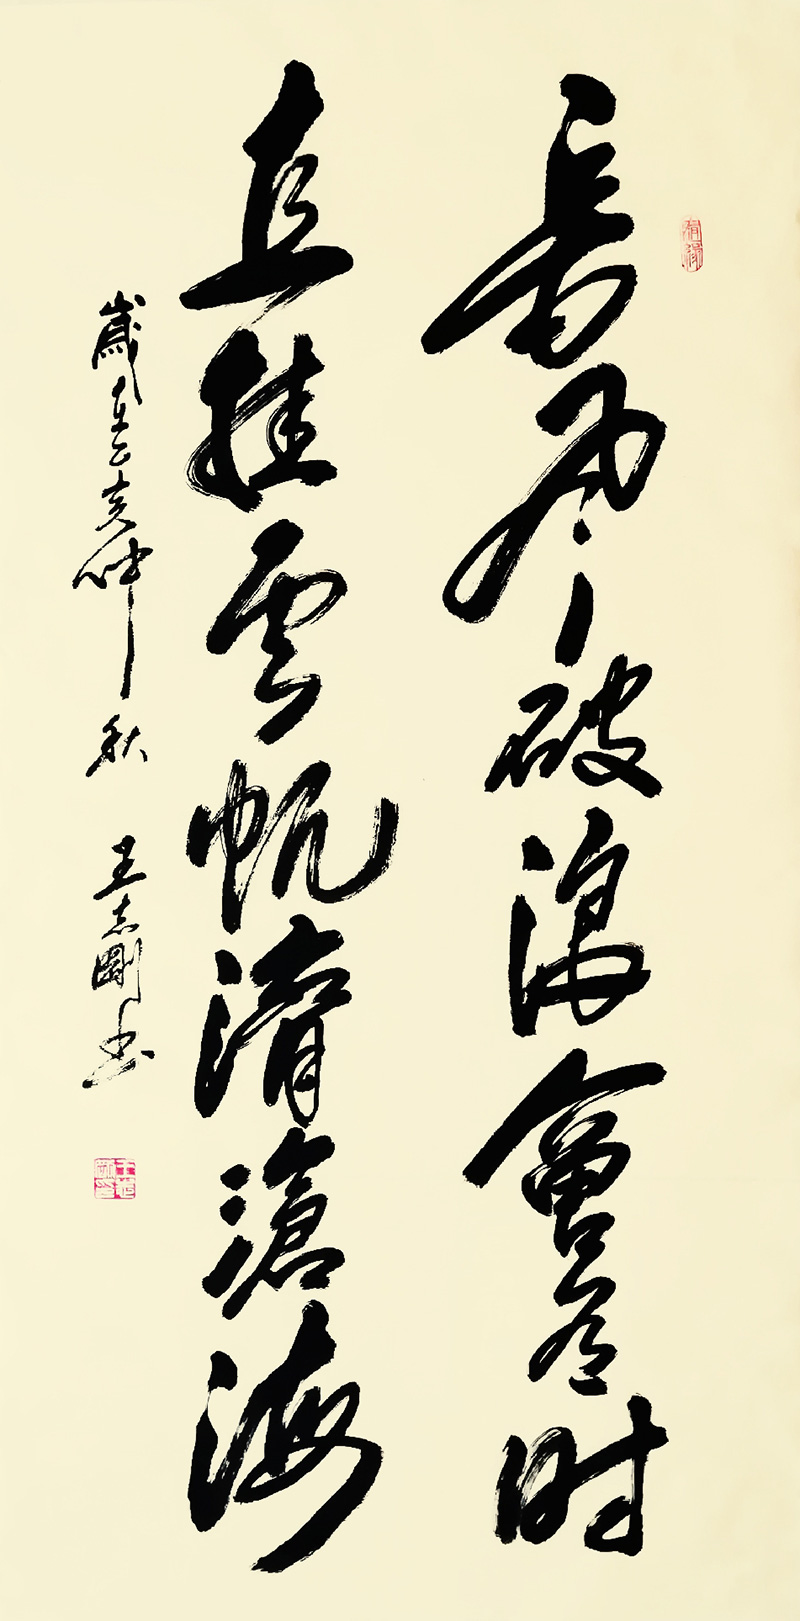 長风破浪會有时
直挂雲帆濟滄海
歲在己亥仲秋 王志剛书